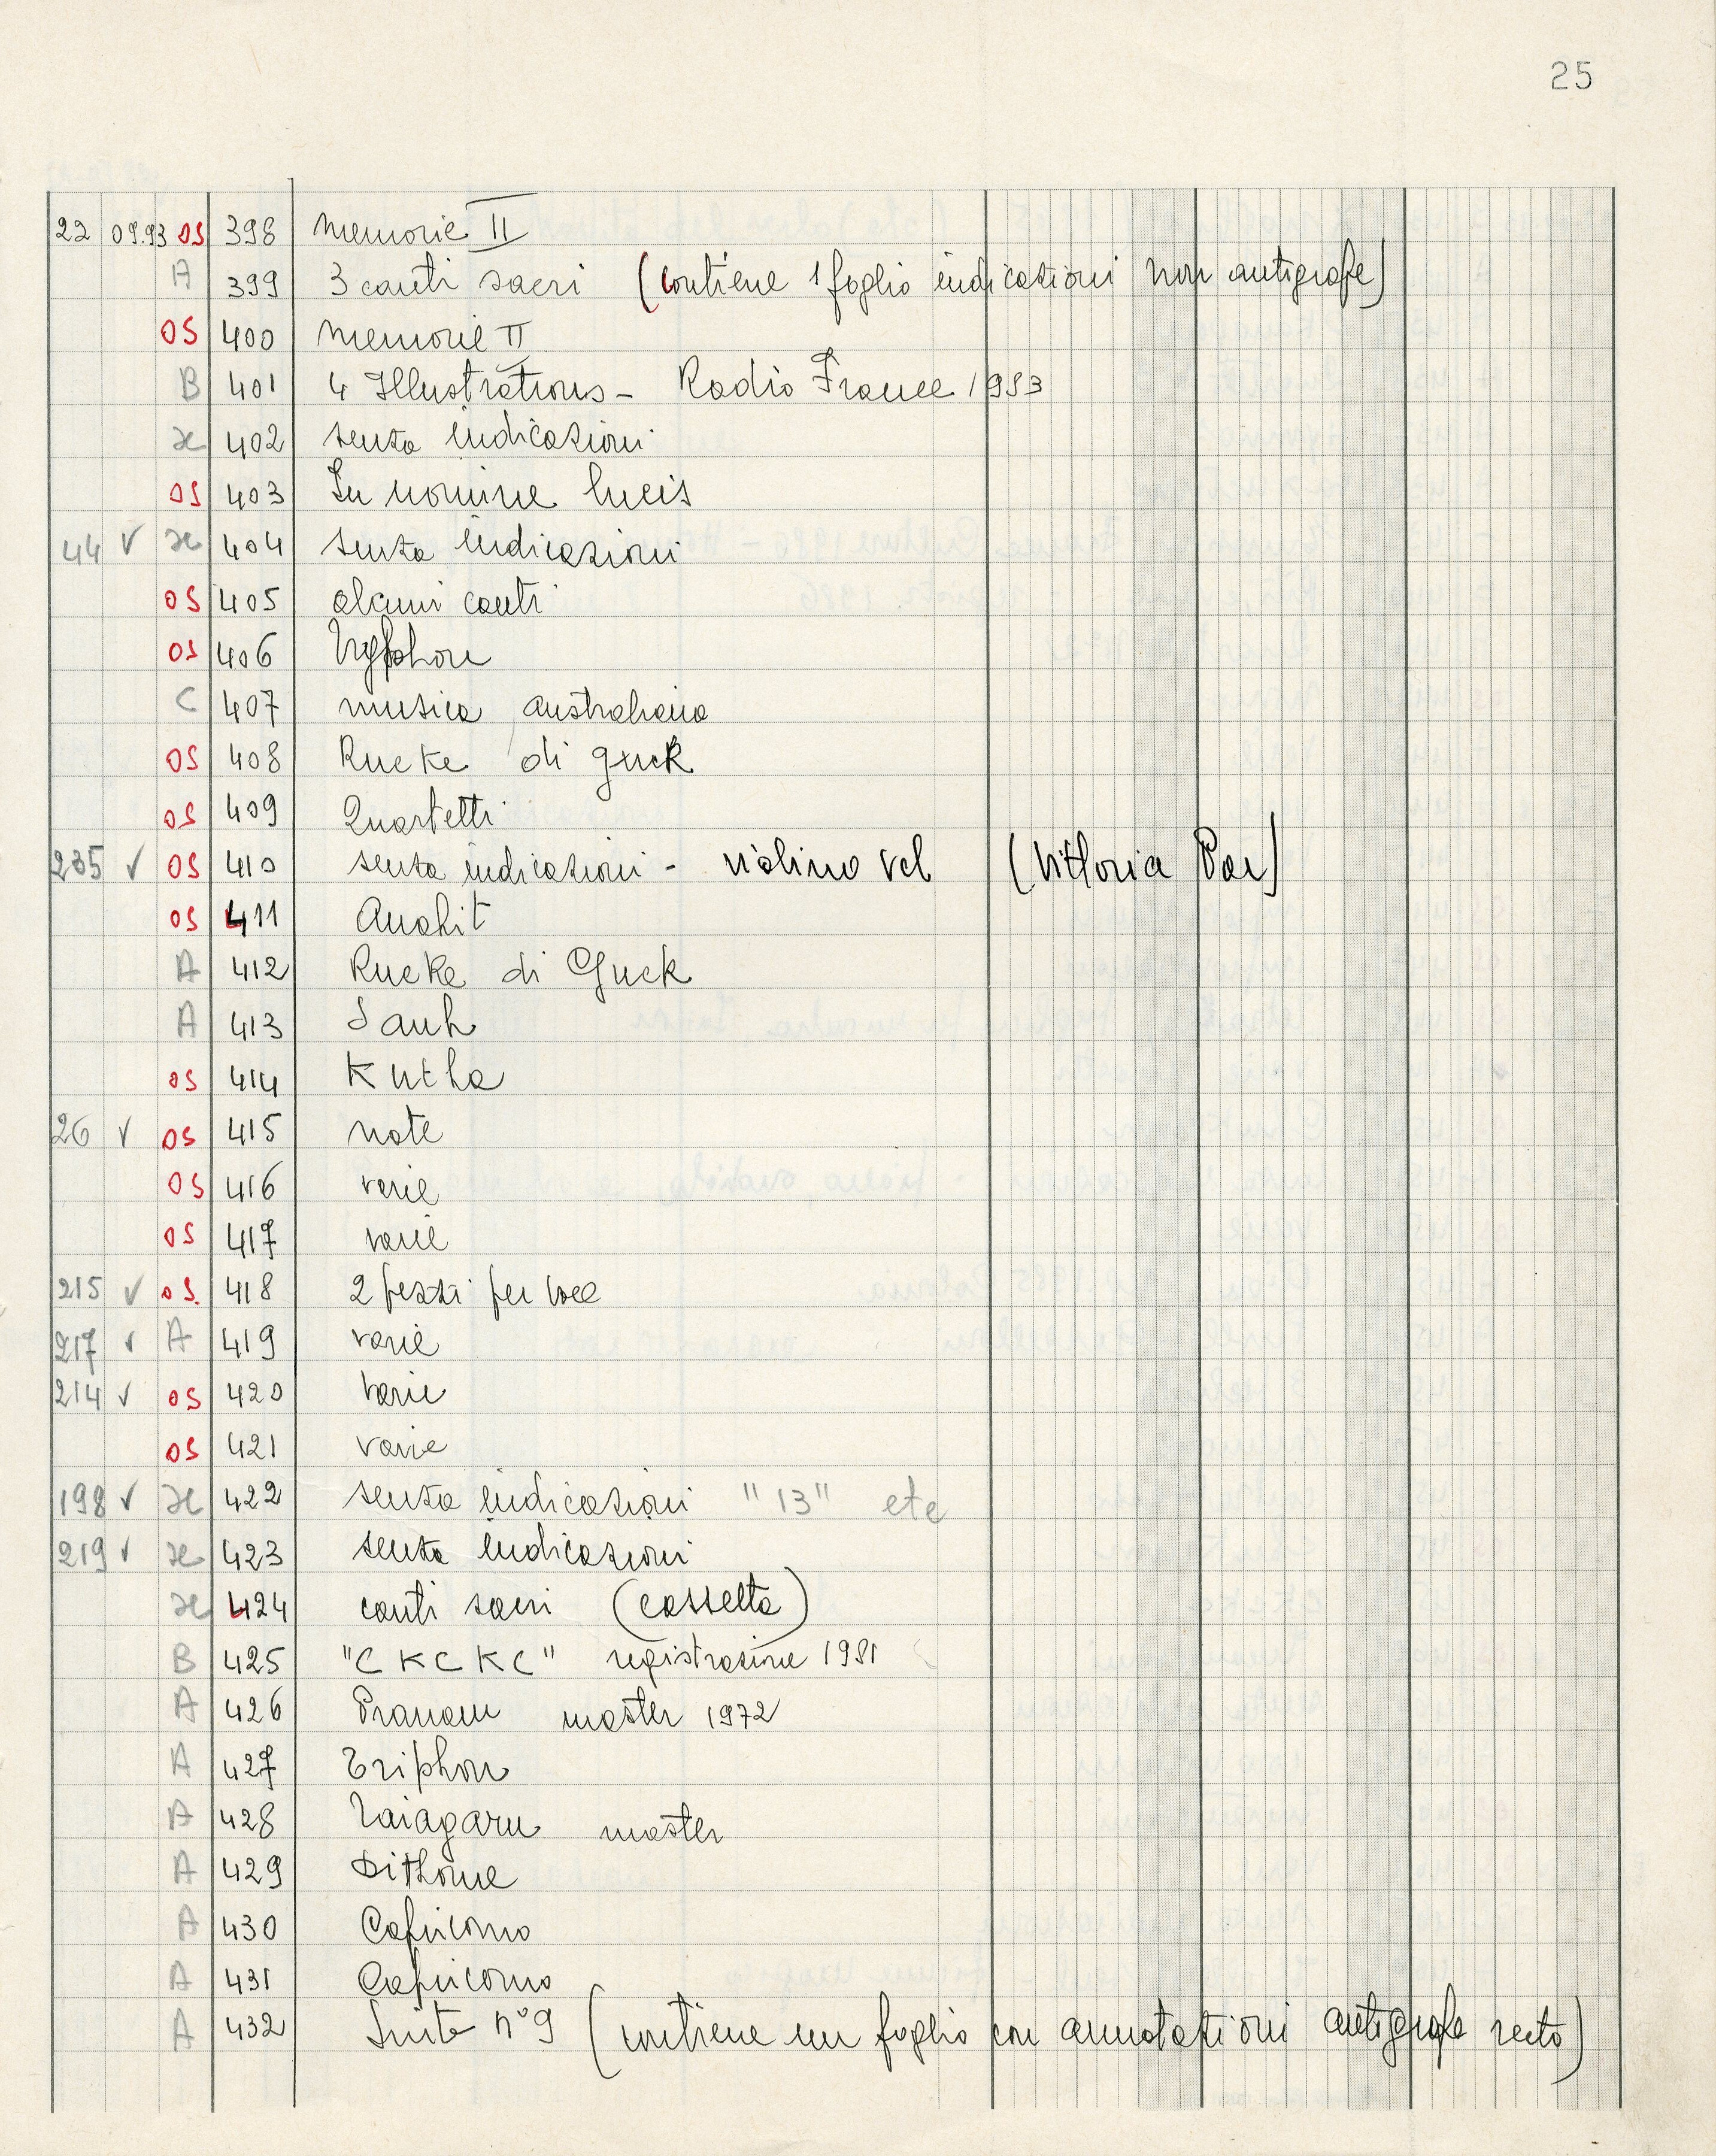 25
22 09.93 OS 398 Memorie II
A 399 3 canti sacri (contiene 1 foglio indicazioni non autografe)
OS 400 Memorie II
B 401 4 Illustrations - Radio France 1983
x 402 senza indicazioni
OS 403 In nomine lucis
44 √ x 404 senza indicazioni
OS 405 alcuni canti
OS 406
C 407 musica australiana
OS 408 Rucke di guck
OS 409 Quartetti
235 √ OS 410 senza indicazioni - violino vcl (Vittoria Par)
OS 411 Anahit
A 412 Rucke di Guck
A 413 Sauh
OS 414 Kutha
26 √ OS 415 note
OS 416 varie
OS 417 varie
215 √ OS. 418 2 pezzi per voce
217 √ A 419 varie
214 √ OS 420 varie
OS 421 varie
198 √ x 422 senza indicazioni "13" etc
219 √ x 423 senza indicazioni
x 424 canti sacri (cassetta)
B 425 "C K C K C" registrazione 1981
A 426 Pranam master 1972
A 427 Triphon
A 428 Taiagaru master
A 429 Dithome
A 430 Capricorno
A 431 Capricorno
A 432 Suite n° 9 (contiene un foglio con annotazioni autografe recto)